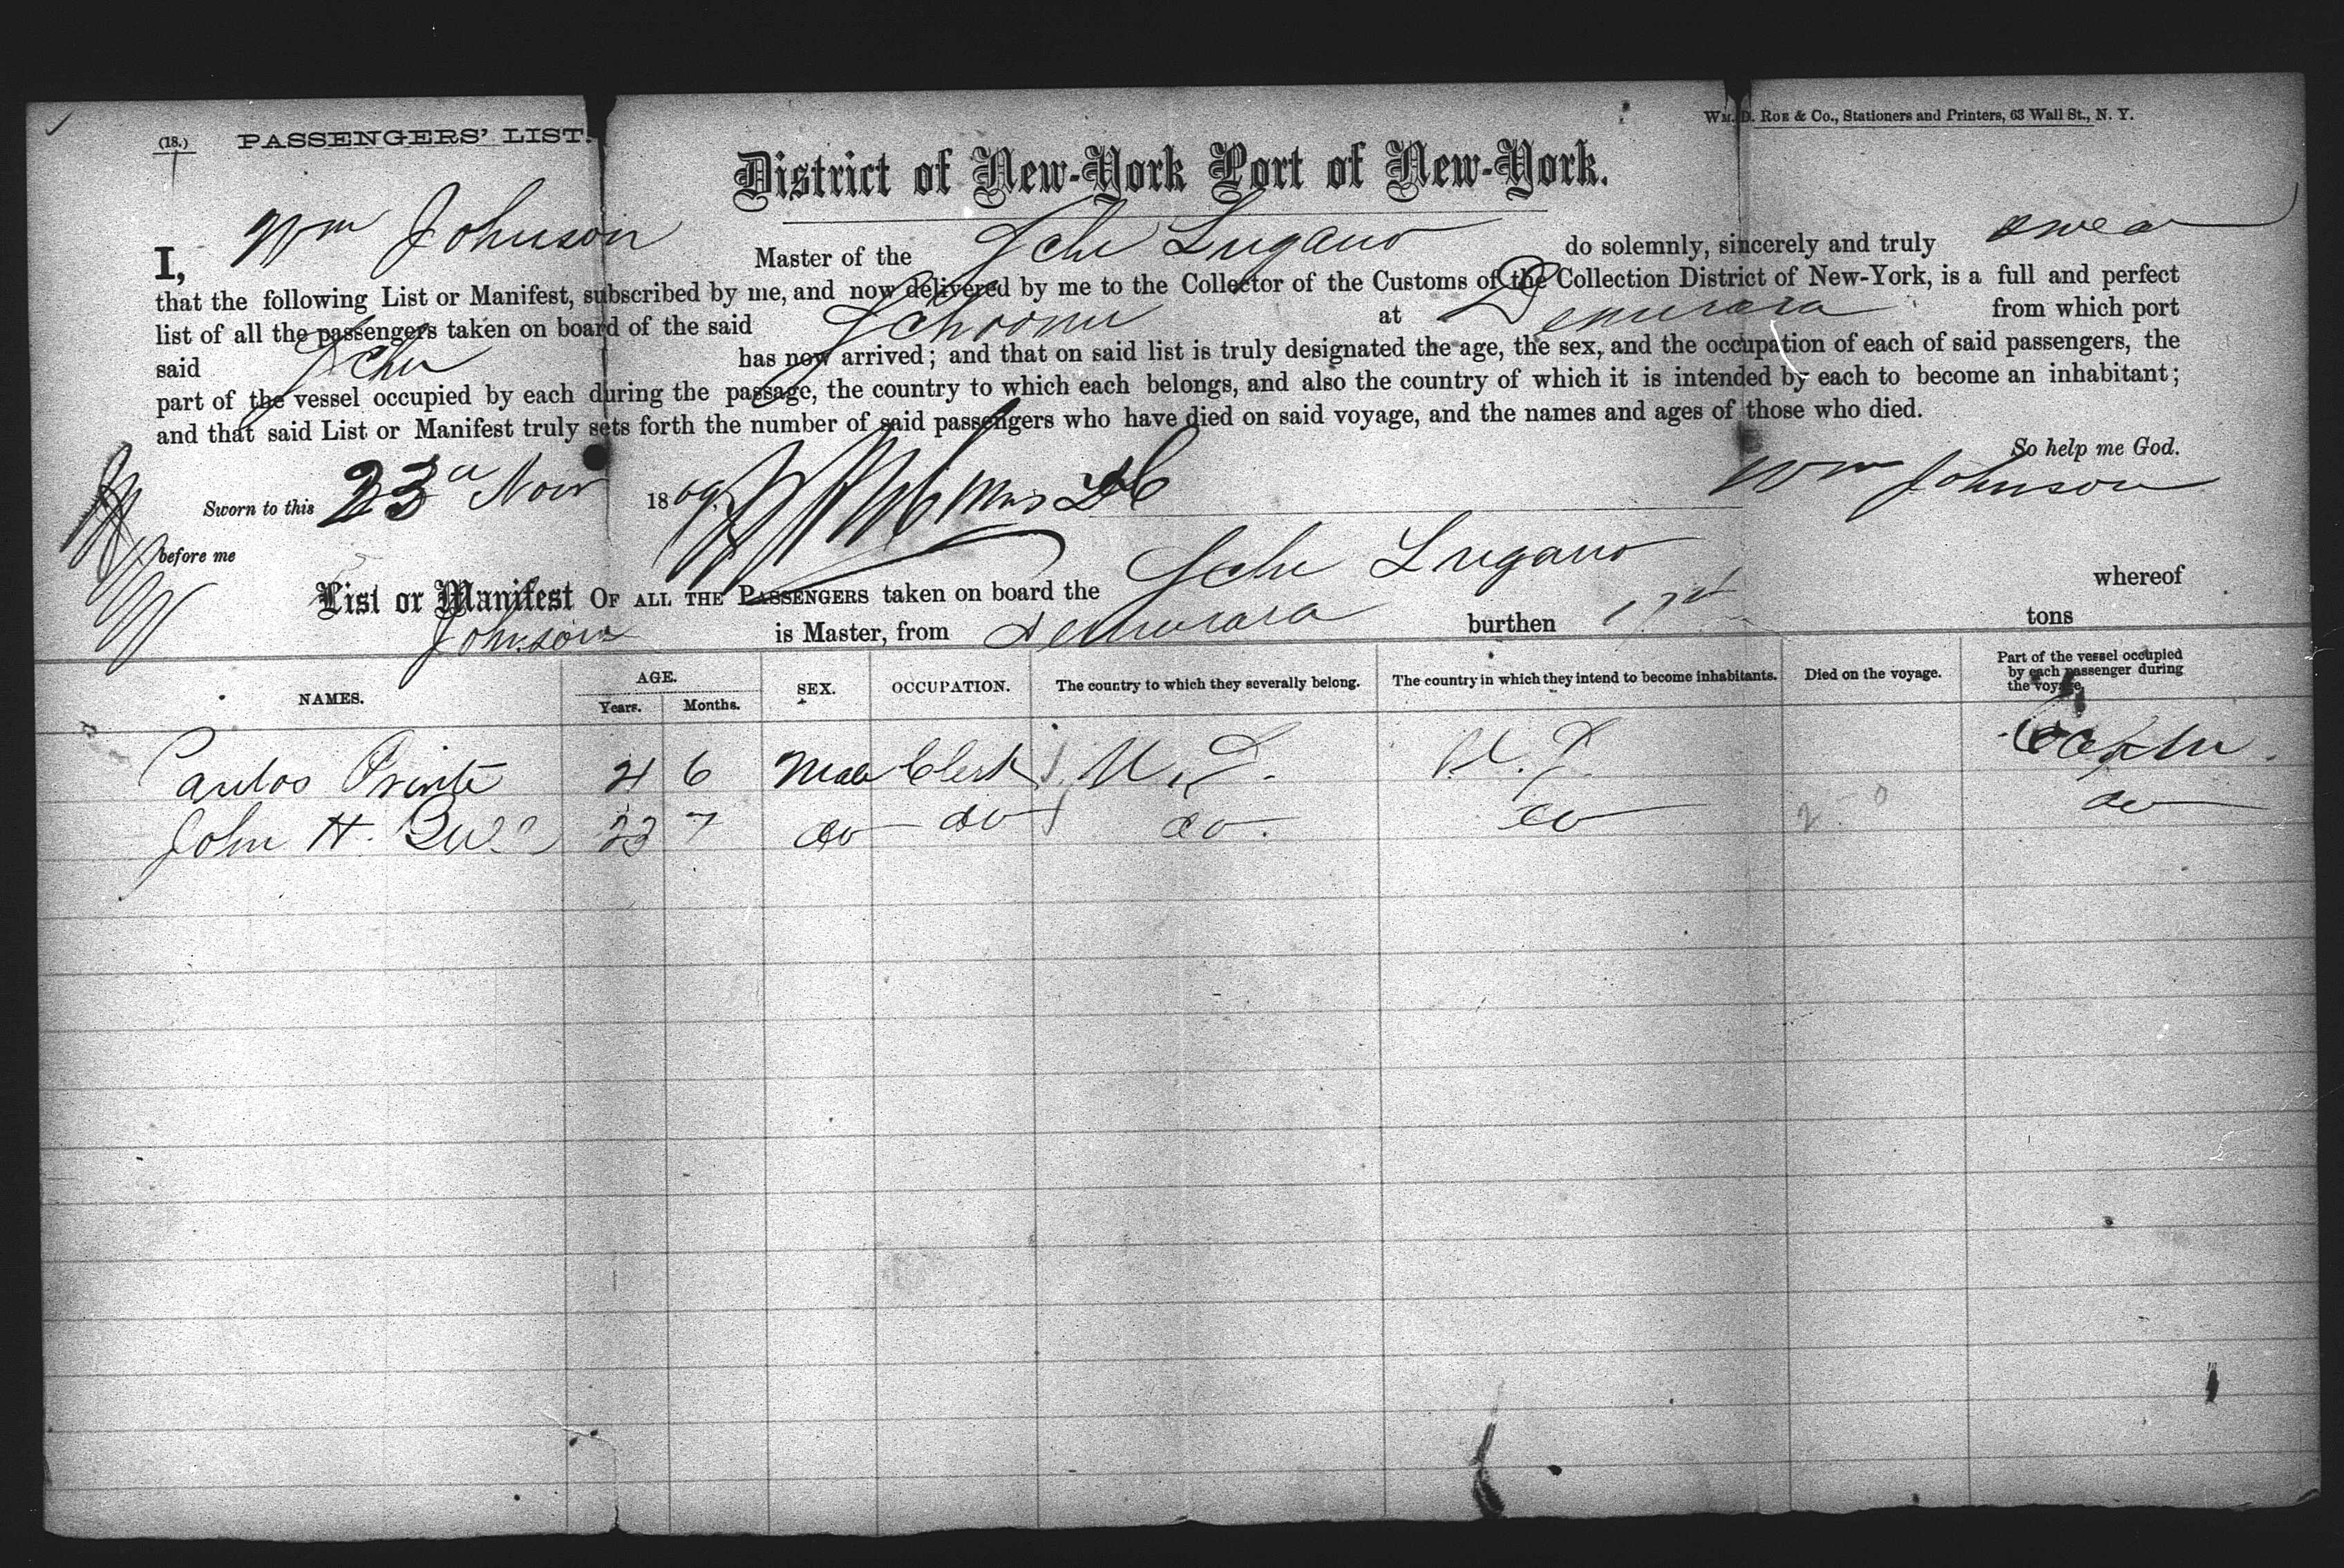 (18.) PASSENGERS' LIST. WM. D. ROE & Co., Stationers and Printers, 63 Wall St., N. Y.
District of New-York Port of New-York.
I, Wm Johnson Master of the Schr Lugano do solemnly, sincerely and truly swear
that the following List or Manifest, subscribed by me, and now delivered by me to the Collector of the Customs of the Collection District of New-York, is a full and perfect
list of all the passengers taken on board of the said Schooner at Demerara from which port
said Schr has now arrived; and that on said list is truly designated the age, the sex, and the occupation of each of said passengers, the
part of the vessel occupied by each during the passage, the country to which each belongs, and also the country of which it is intended by each to become an inhabitant;
and that said List or Manifest truly sets forth the number of said passengers who have died on said voyage, and the names and ages of those who died.
So help me God.
Sworn to this 23d Nov 1869. Wm Johnson
before me
List or Manifest OF ALL THE PASSENGERS taken on board the Schr Lugano whereof
Johnson is Master, from Demerara burthen tons
NAMES. AGE. Years. Months. SEX. OCCUPATION. The country to which they severally belong. The country in which they intend to become inhabitants. Died on the voyage. Part of the vessel occupied by each passenger during the voyage.
Carlos 21 6 Male Clerk U.S. U.S.
John H. 23 7 do do do. do do